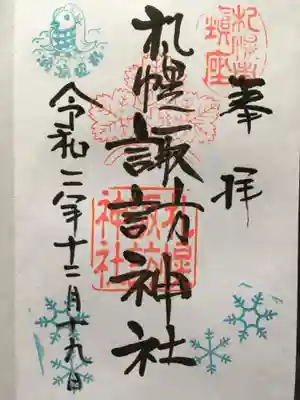 奉拝
札幌諏訪神社
令和二年十二月十九日
札幌諏訪神社